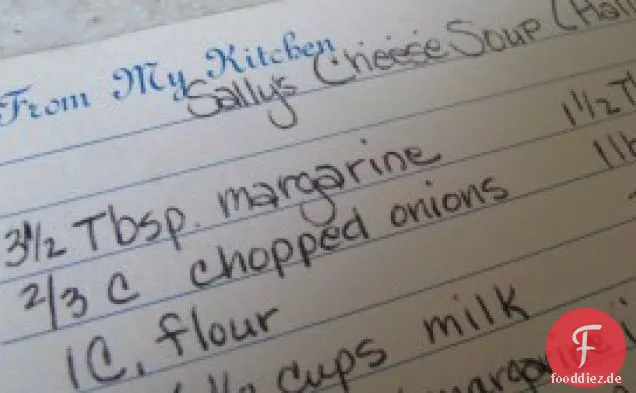 From My Kitchen
Sally's Cheese Soup (Hal
3 1/2 Tbsp. margarine 1 1/2 Tb
2/3 C chopped onions 1 lb
1 C. flour
1/2 cups milk
margarine i
F
fooddiez.de